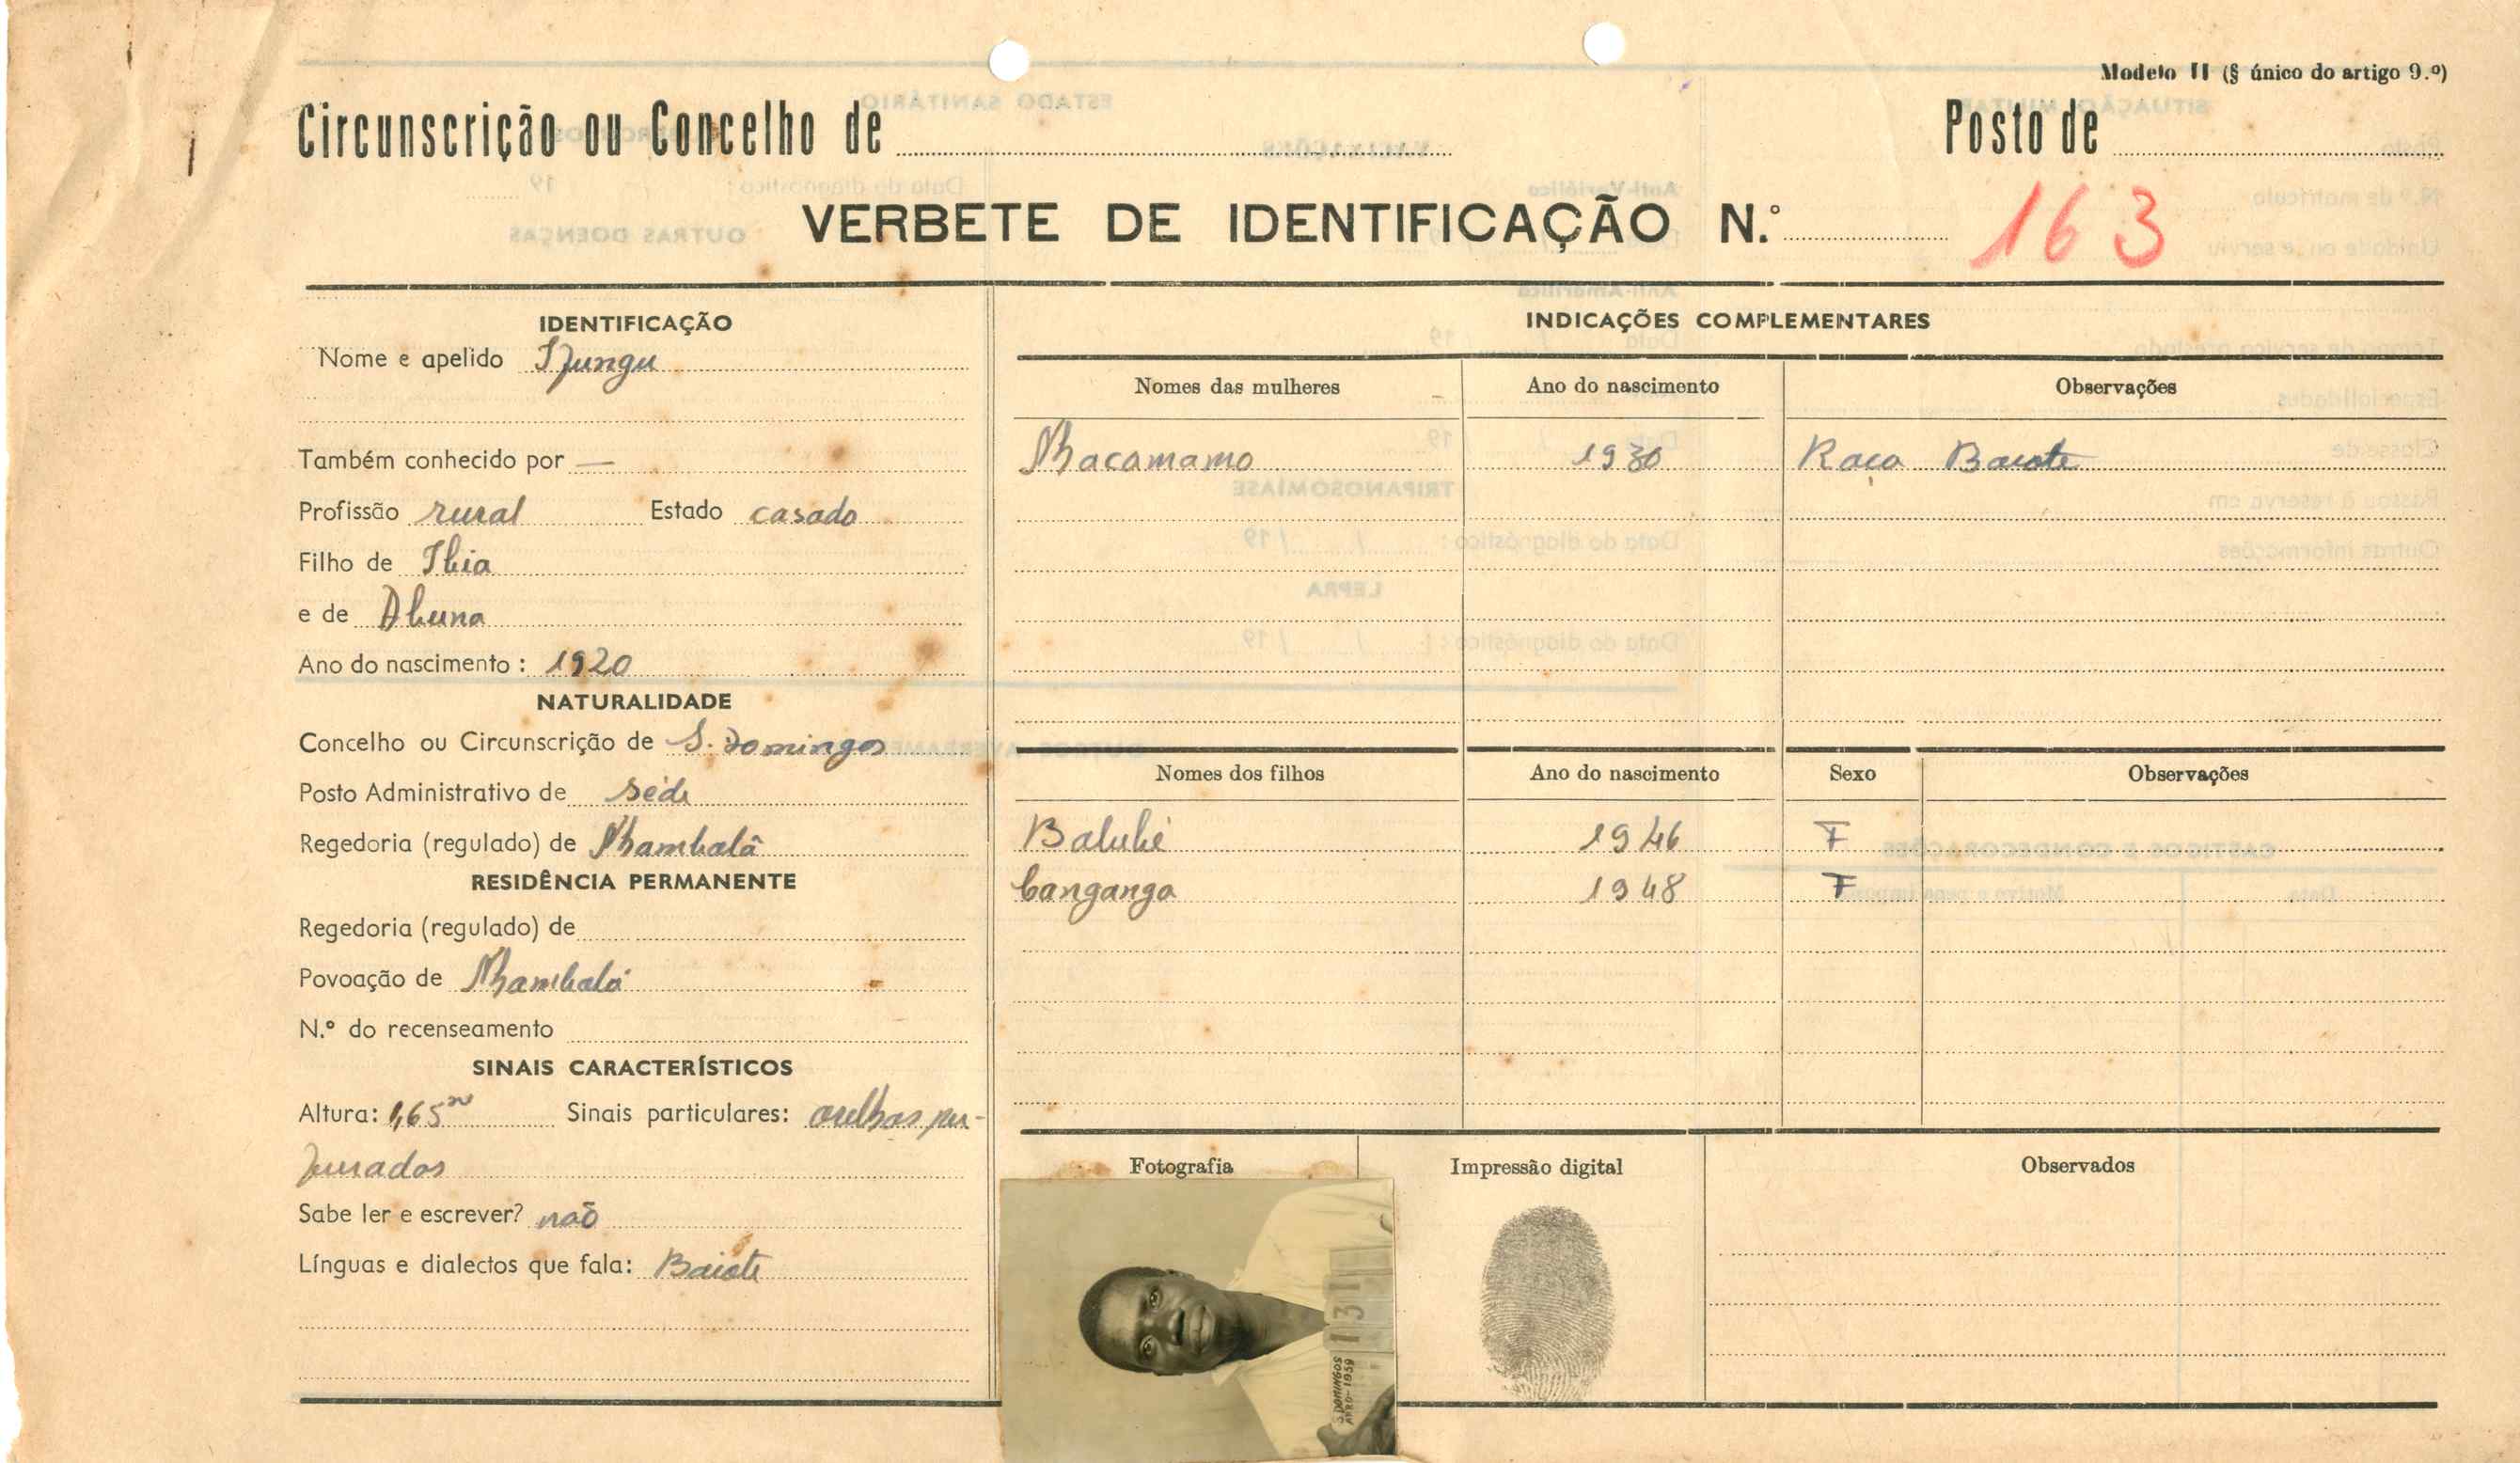 Modelo II (§ único do artigo 9.º)
Circunscrição ou Concelho de
Posto de
VERBETE DE IDENTIFICAÇÃO N.º 163
IDENTIFICAÇÃO
Nome e apelido
Também conhecido por —
Profissão rural Estado casado
Filho de
e de
Ano do nascimento: 1920
NATURALIDADE
Concelho ou Circunscrição de S. Domingos
Posto Administrativo de Sede
Regedoria (regulado) de
RESIDÊNCIA PERMANENTE
Regedoria (regulado) de
Povoação de
N.º do recenseamento
SINAIS CARACTERÍSTICOS
Altura: 1,65m Sinais particulares: orelhas per-
furadas
Sabe ler e escrever? não
Línguas e dialectos que fala: Baiote
INDICAÇÕES COMPLEMENTARES
Nomes das mulheres Ano do nascimento Observações
1930 Raça Baiote
Nomes dos filhos Ano do nascimento Sexo Observações
1946 F
Canganga 1948 F
Fotografia Impressão digital Observados
131
S. DOMINGOS
ANRO-1959